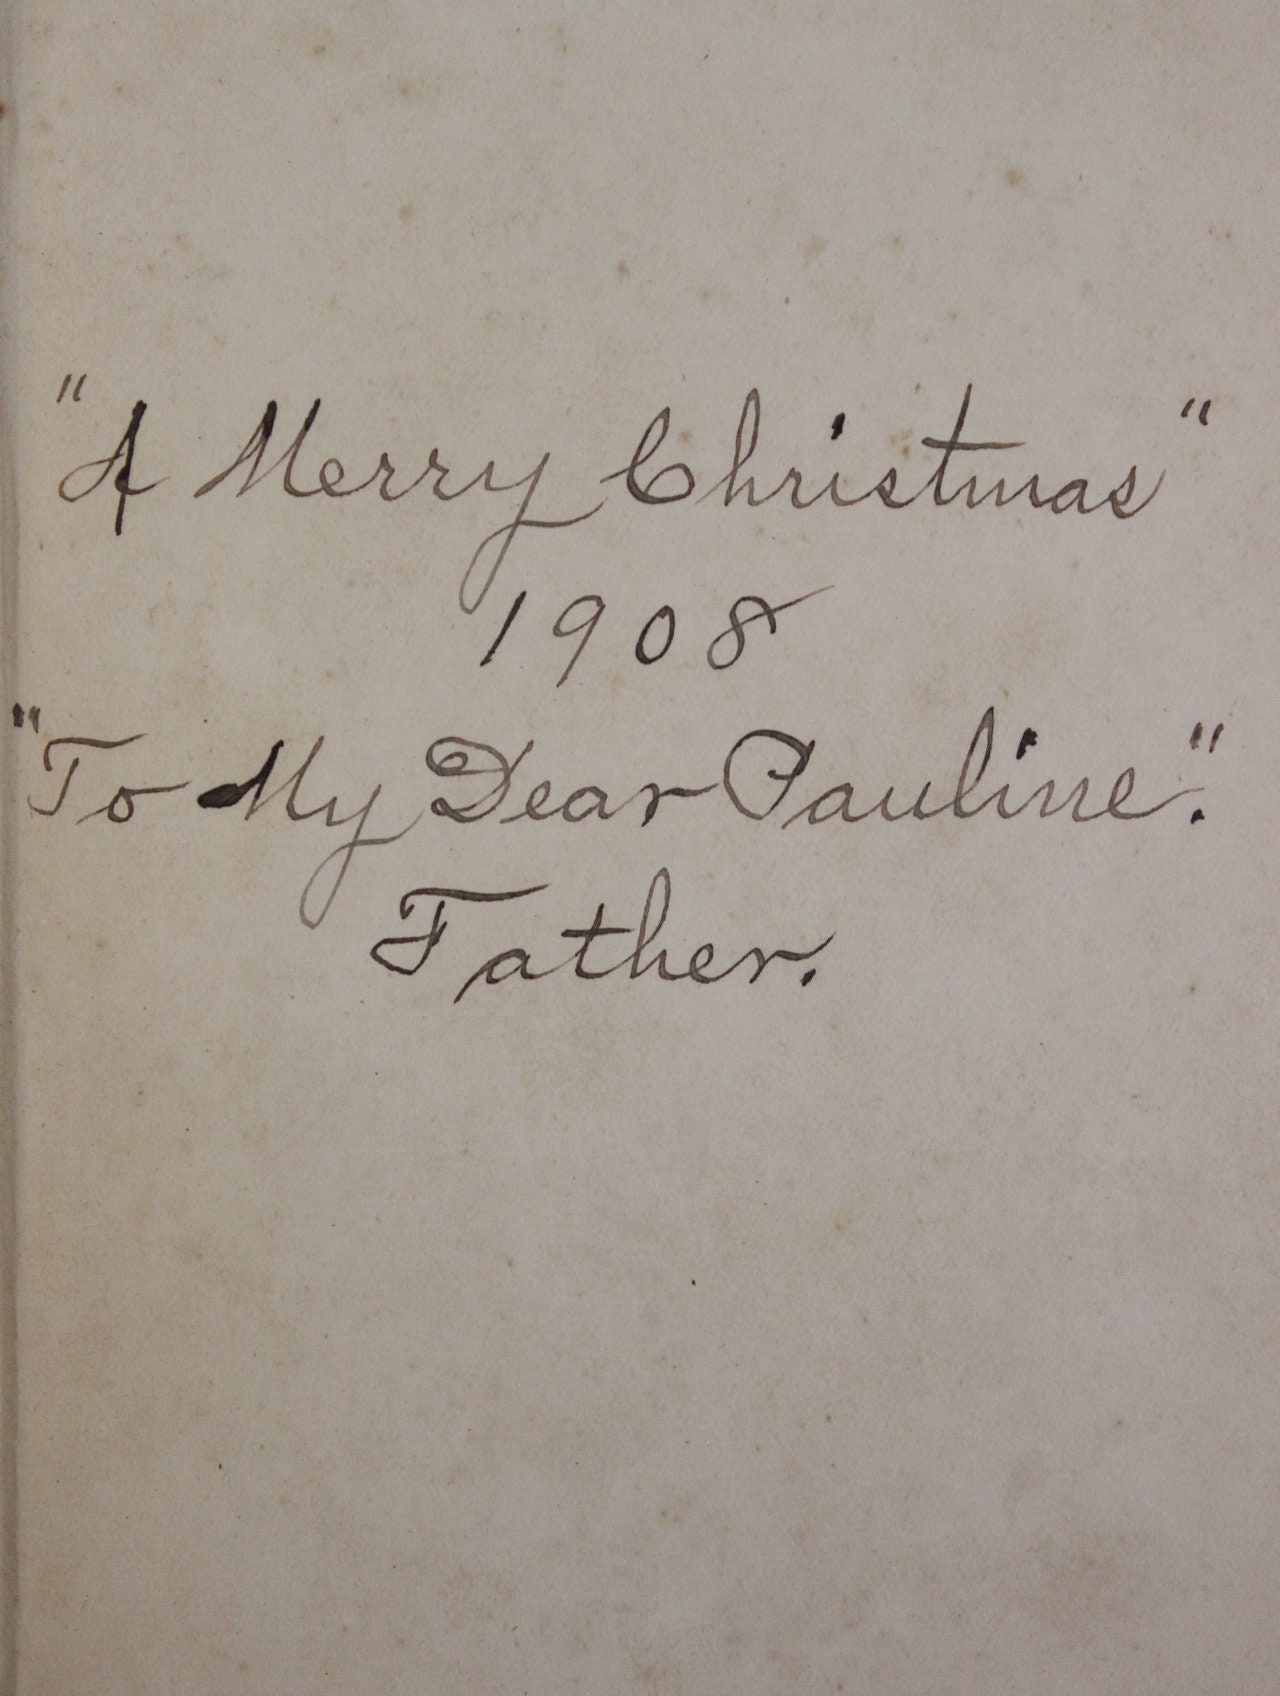 "A Merry Christmas"
1908
"To My Dear Pauline."
Father.